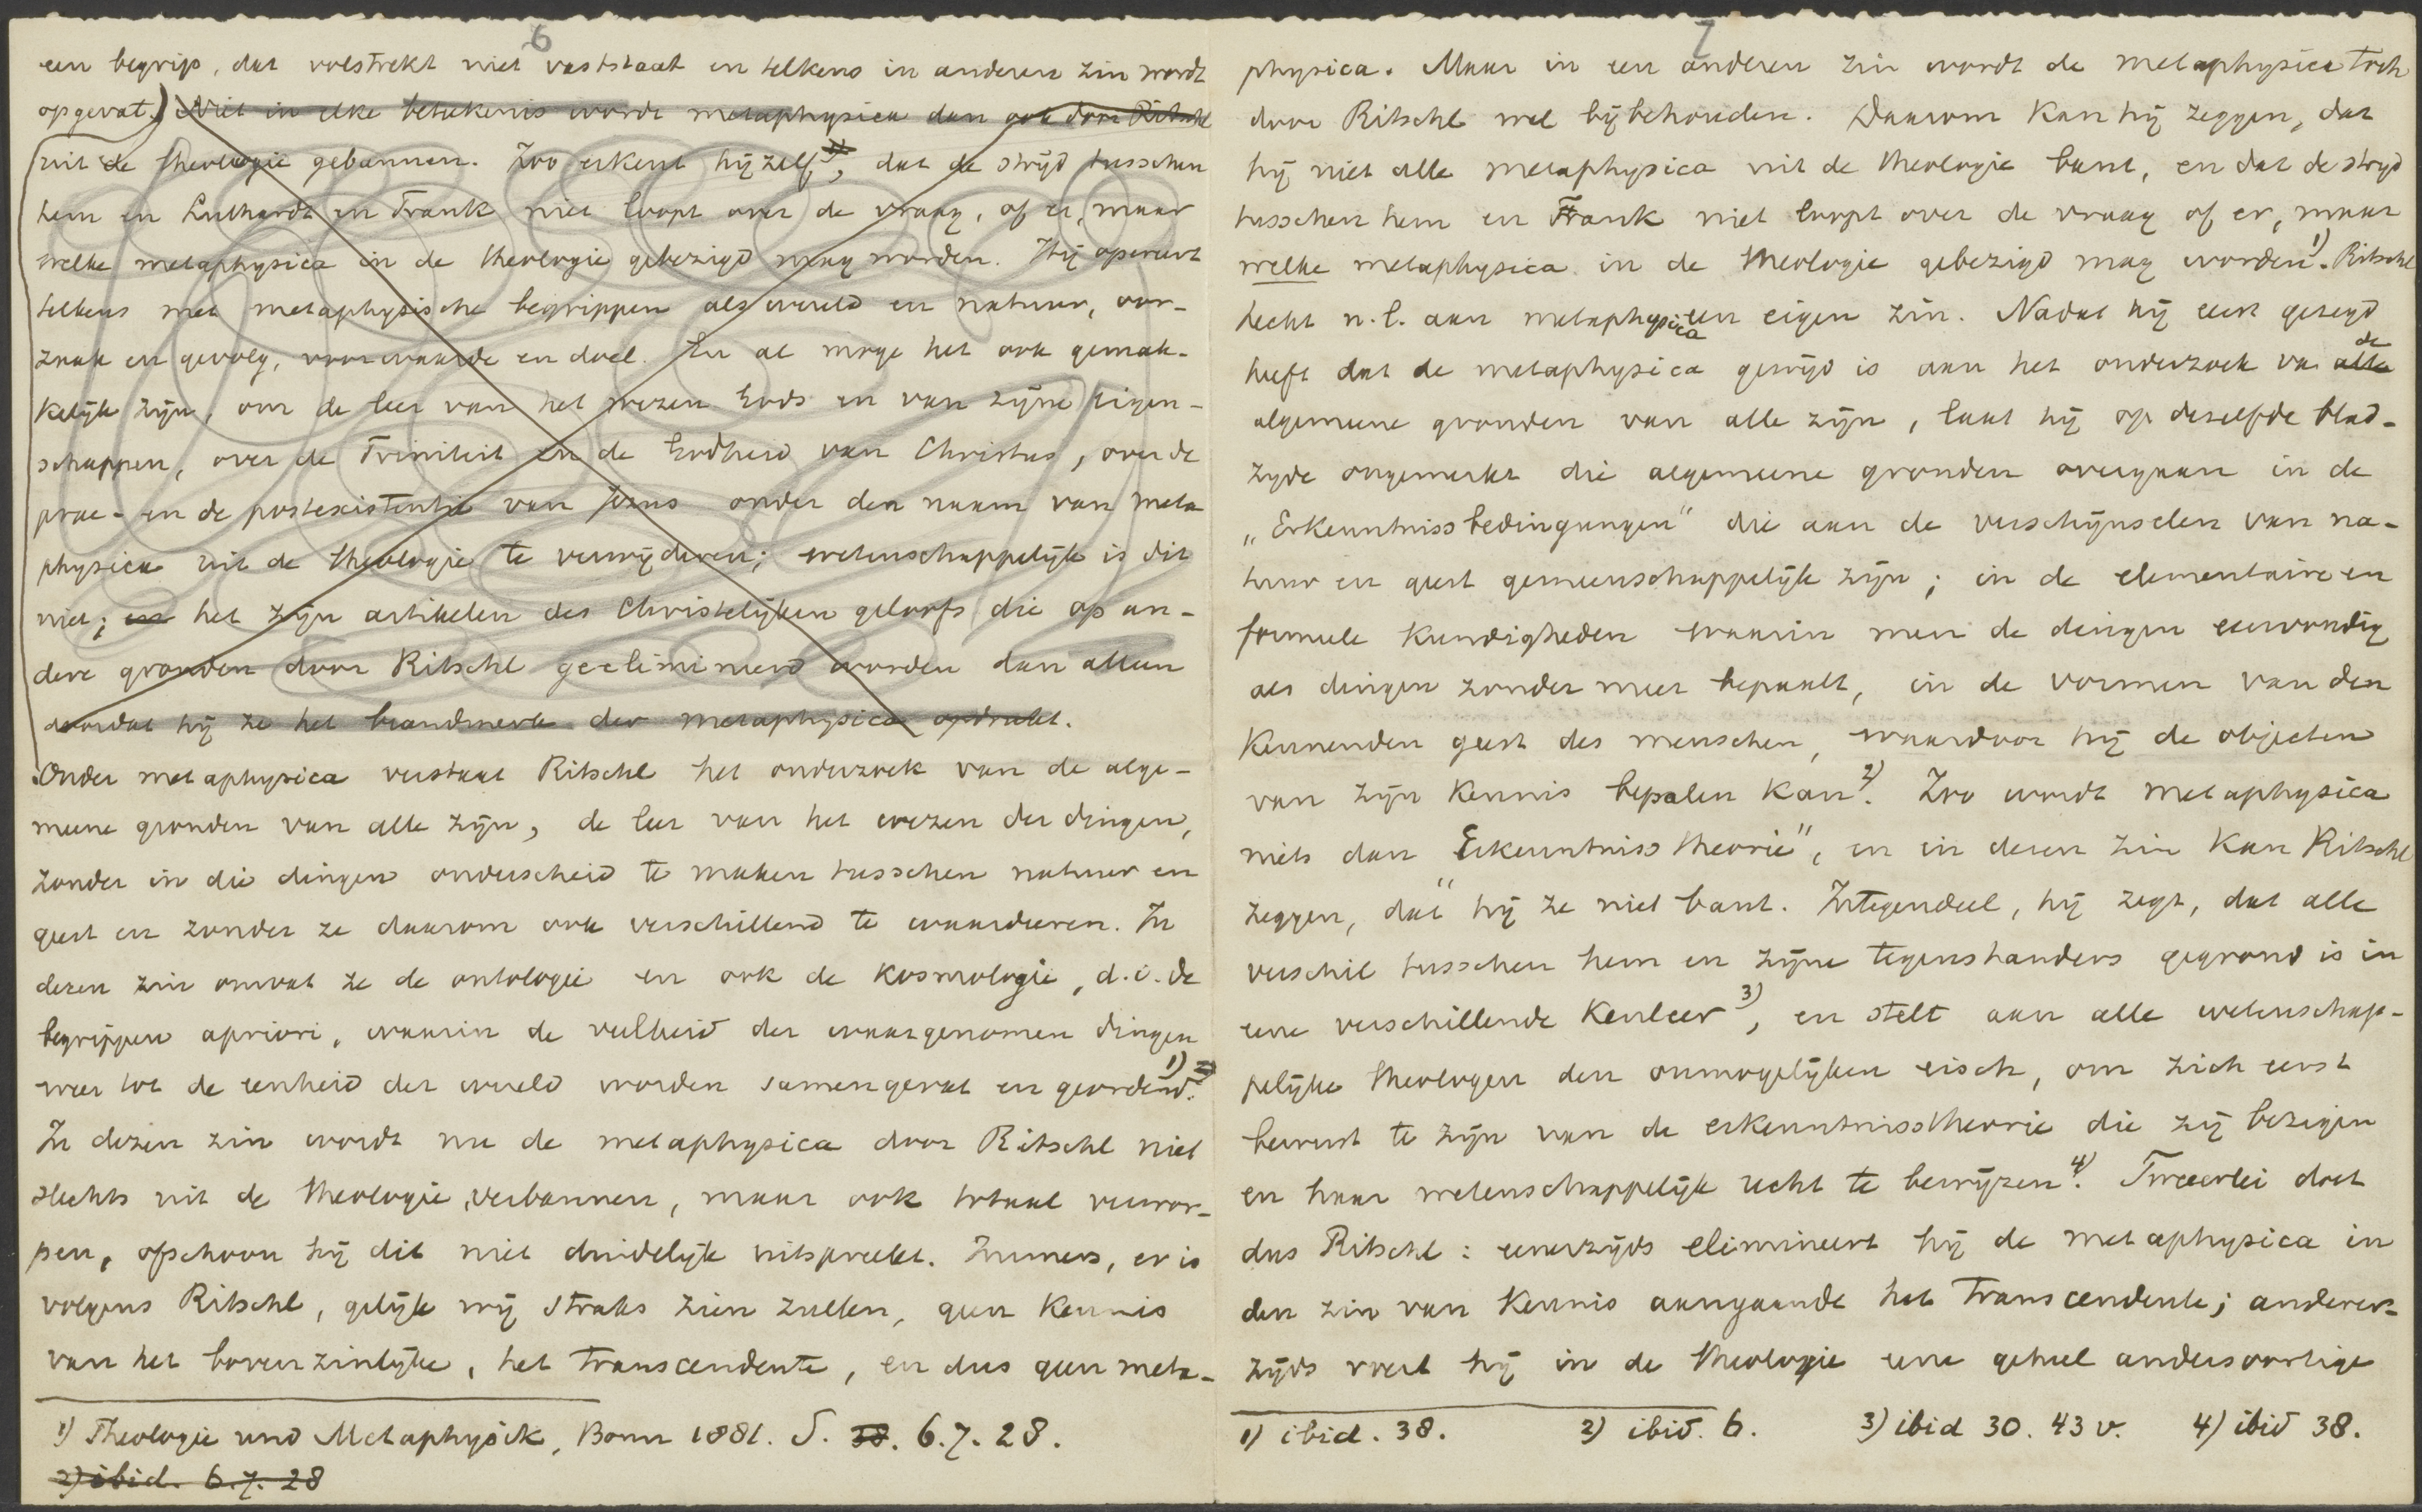 6
een begrip, dat volstrekt niet vaststaat en telkens in anderen zin wordt
opgevat.) Niet in elke betekenis wordt metaphysica dan ook door Ritschl
uit de theologie gebannen. Zoo erkent hij zelf 1), dat de strijd tusschen
hem en Luthardt en Frank niet loopt over de vraag, of er, maar
welke metaphysica in de theologie gebezigd mag worden. Hij opereert
telkens met metaphysische begrippen als wereld en natuur, oor-
zaak en gevolg, voorwaarde en doel. En al moge het ook gemak-
kelijk zijn, om de leer van het wezen Gods en van zijne eigen-
schappen, over de Triniteit en de Godheid van Christus, over de
prae- en de postexistentie van Jezus onder den naam van meta
physica uit de theologie te verwijderen; wetenschappelijk is dit
niet; en het zijn artikelen des Christelijken geloofs die op an-
dere gronden door Ritschl geelimineerd worden dan alleen
doordat hij ze het brandmerk der metaphysica opdrukt.
Onder metaphysica verstaat Ritschl het onderzoek van de alge-
meene gronden van alle zijn, de leer van het wezen der dingen,
zonder in die dingen onderscheid te maken tusschen natuur en
geest en zonder ze daarom ook verschillend te waardeeren. In
dezen zin omvat ze de ontologie en ook de kosmologie, d.i. de
begrippen apriori, waarin de veelheid der waargenomen dingen
weer tot de eenheid der wereld worden samengevat en geordend. 1) 2)
In dezen zin wordt nu de metaphysica door Ritschl niet
slechts uit de theologie verbannen, maar ook totaal verwor-
pen, ofschoon hij dit niet duidelijk uitspreekt. Immers, er is
volgens Ritschl, gelijk wij straks zien zullen, geen kennis
van het bovenzinlijke, het transcendente, en dus geen meta-
1) Theologie und Metaphysik, Bonn 1881. S. 38. 6. 7. 28.
2) ibid. 6. 7. 28
7
physica. Maar in een anderen zin wordt de metaphysica toch
door Ritschl wel bijbehouden. Daarom kan hij zeggen, dat
hij niet alle metaphysica uit de theologie bant, en dat de strijd
tusschen hem en Frank niet loopt over de vraag of er, maar
welke metaphysica in de theologie gebezigd mag worden 1). Ritschl
hecht n.l. aan metaphysica een eigen zin. Nadat hij eerst gezegd
heeft dat de metaphysica gewijd is aan het onderzoek va alle de
algemeene gronden van alle zijn, laat hij op dezelfde blad-
zijde ongemerkt die algemeene gronden overgaan in de
„Erkenntnissbedingungen" die aan de verschijnselen van na-
tuur en geest gemeenschappelijk zijn; in de elementaire en
formeele kundigheden waarin men de dingen eenvoudig
als dingen zonder meer bepaalt, in de vormen van den
kennenden geest des menschen, waardoor hij de objecten
van zijn kennis bepalen kan 2). Zoo wordt metaphysica
niets dan „Erkenntnisstheorie", en in dezen zin kan Ritschl
zeggen, dat hij ze niet bant. Integendeel, hij zegt, dat alle
verschil tusschen hem en zijne tegenstanders gegrond is in
eene verschillende kenleer 3), en stelt aan alle wetenschap-
pelijke theologen den onmogelijken eisch, om zich eerst
bewust te zijn van de erkenntnisstheorie die zij bezigen
en haar wetenschappelijk recht te bewijzen 4). Tweeerlei doet
dus Ritschl: eenerzijds elimineert hij de metaphysica in
den zin van kennis aangaande het transcendente; anderer-
zijds voert hij in de theologie eene geheel andersoortige
1) ibid. 38. 2) ibid. 6. 3) ibid 30. 43 v. 4) ibid 38.